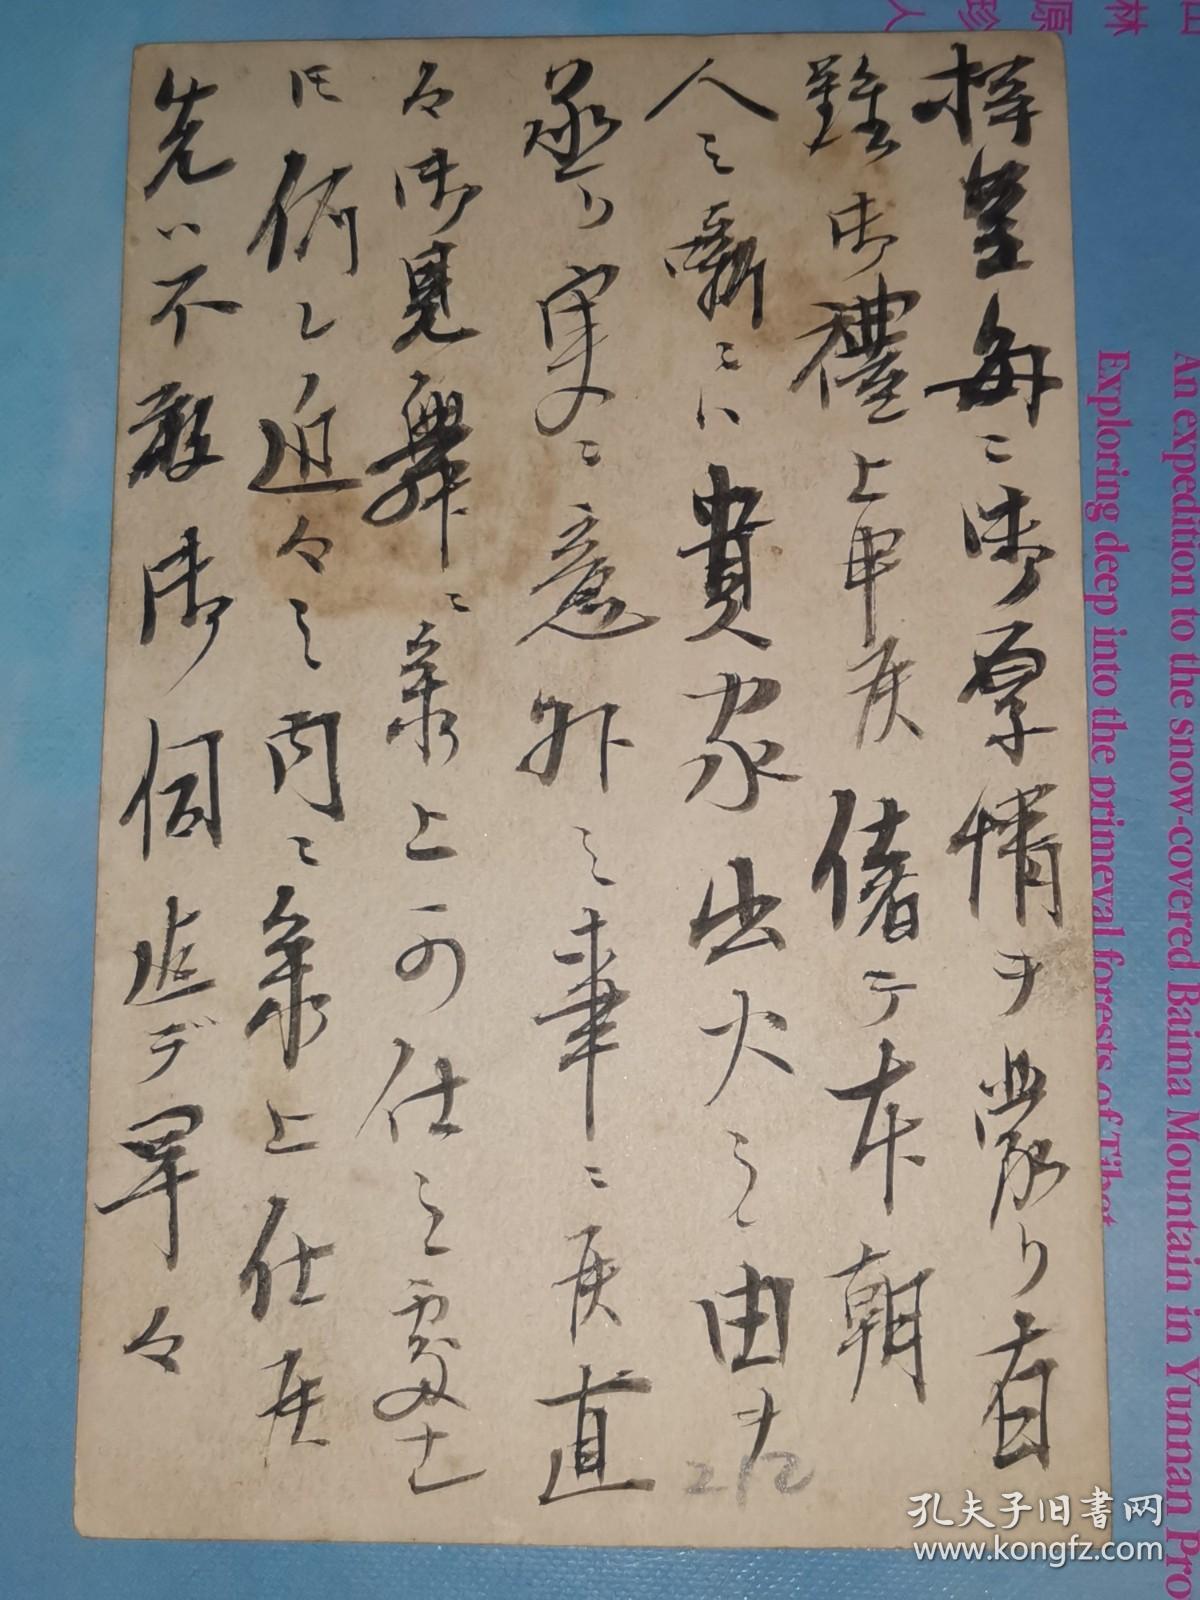 拝呈毎ニ御厚情ヲ蒙リ有
難御禮上申候偖テ本朝
人之噺ニハ貴家出火之由ヲ
承リ実ニ意外之事ニ候直
々御見舞ニ参上可仕之處
何レ近々之内ニ参上仕候
先ハ不敢御伺迄デ早々
212
孔夫子旧书网
www.kongfz.com
An expedition to the snow-covered Baima Mountain in Yunnan Pro
Exploring deep into the primeval forests of Tibet
林
原
珍
人